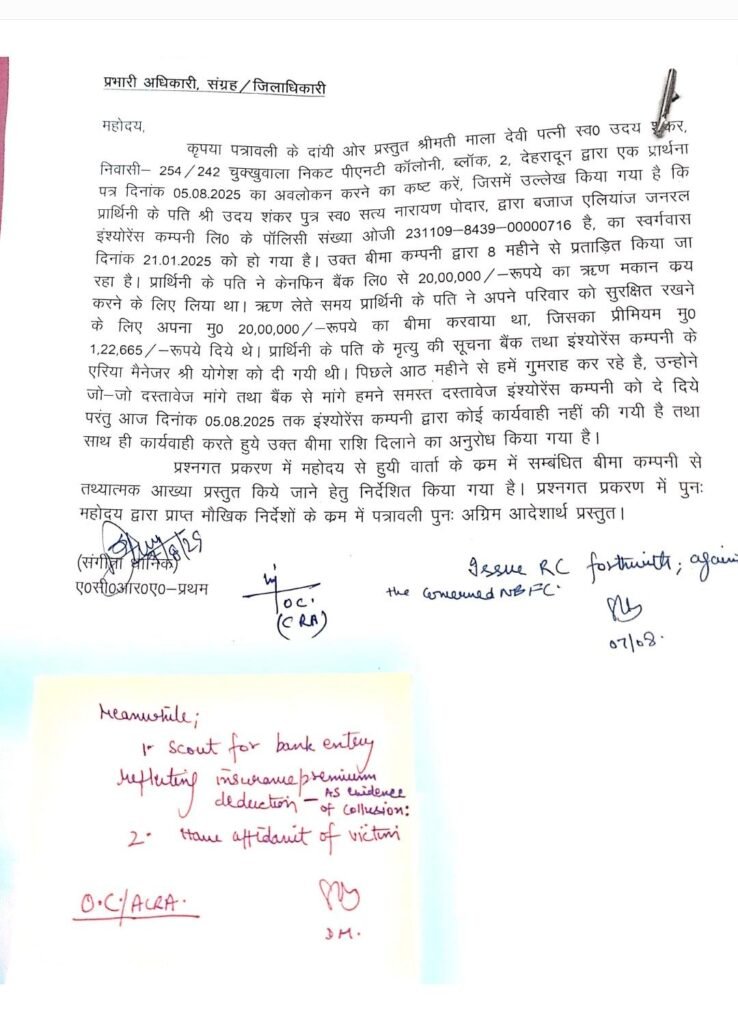 प्रभारी अधिकारी, संग्रह/जिलाधिकारी
महोदय,
कृपया पत्रावली के दांयी ओर प्रस्तुत श्रीमती माला देवी पत्नी स्व0 उदय शंकर,
निवासी– 254/242 चुक्खुवाला निकट पीएनटी कॉलोनी, ब्लॉक, 2, देहरादून द्वारा एक प्रार्थना
पत्र दिनांक 05.08.2025 का अवलोकन करने का कष्ट करें, जिसमें उल्लेख किया गया है कि
प्रार्थिनी के पति श्री उदय शंकर पुत्र स्व0 सत्य नारायण पोदार, द्वारा बजाज एलियांज जनरल
इंश्योरेंस कम्पनी लि0 के पॉलिसी संख्या ओजी 231109-8439-00000716 है, का स्वर्गवास
दिनांक 21.01.2025 को हो गया है। उक्त बीमा कम्पनी द्वारा 8 महीने से प्रताड़ित किया जा
रहा है। प्रार्थिनी के पति ने केनफिन बैंक लि0 से 20,00,000/–रूपये का ऋण मकान क्रय
करने के लिए लिया था। ऋण लेते समय प्रार्थिनी के पति ने अपने परिवार को सुरक्षित रखने
के लिए अपना मु0 20,00,000/–रूपये का बीमा करवाया था, जिसका प्रीमियम मु0
1,22,665/–रूपये दिये थे। प्रार्थिनी के पति के मृत्यु की सूचना बैंक तथा इंश्योरेंस कम्पनी के
एरिया मैनेजर श्री योगेश को दी गयी थी। पिछले आठ महीने से हमें गुमराह कर रहे है, उन्होने
जो–जो दस्तावेज मांगे तथा बैंक से मांगे हमने समस्त दस्तावेज इंश्योरेंस कम्पनी को दे दिये
परंतु आज दिनांक 05.08.2025 तक इंश्योरेंस कम्पनी द्वारा कोई कार्यवाही नहीं की गयी है तथा
साथ ही कार्यवाही करते हुये उक्त बीमा राशि दिलाने का अनुरोध किया गया है।
प्रश्नगत प्रकरण में महोदय से हुयी वार्ता के क्रम में सम्बंधित बीमा कम्पनी से
तथ्यात्मक आख्या प्रस्तुत किये जाने हेतु निर्देशित किया गया है। प्रश्नगत प्रकरण में पुनः
महोदय द्वारा प्राप्त मौखिक निर्देशों के क्रम में पत्रावली पुनः अग्रिम आदेशार्थ प्रस्तुत।
(संगीता
ए0सी0आर0ए0–प्रथम
O.C.
(CRA)
Issue RC forthwith; again
the concerned NBFC.
07/08.
Meanwhile;
1. Scout for bank entery
reflecting insurance premium
deduction – As evidence
of collusion:
2. Have affidavit of victim
O.C/ACRA.
DM.